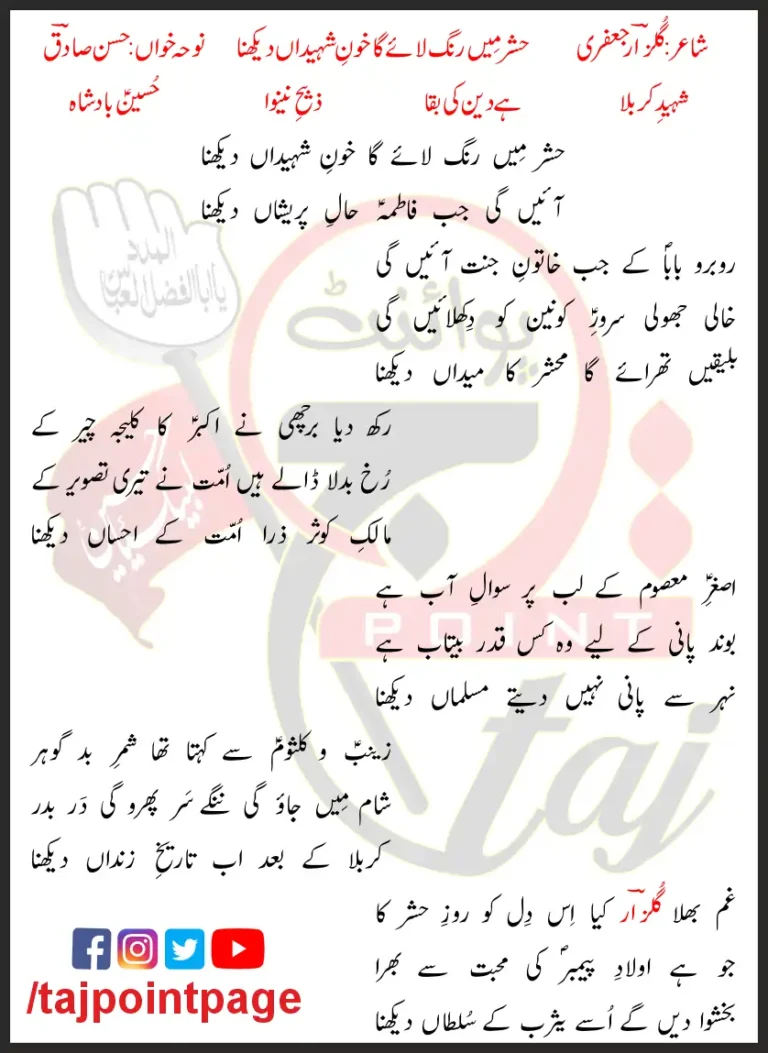 شاعر: گلزارؔ جعفری حشر مِیں رنگ لائے گا خونِ شہیداں دیکھنا نوحہ خواں: حسن صادقؔ
شہیدِ کربلا ہے دین کی بقا ذبیحِ نینوا حُسینؑ بادشاہ
حشر مِیں رنگ لائے گا خونِ شہیداں دیکھنا
آئیں گی جب فاطمہؑ حالِ پریشاں دیکھنا
روبرو باباؐ کے جب خاتونِ جنت آئیں گی
خالی جھولی سرورِؐ کونین کو دِکھلائیں گی
بلیقیں تھرائے گا محشر کا میداں دیکھنا
رکھ دیا برچھی نے اکبرؑ کا کلیجہ چیر کے
رُخ بدلا ڈالے ہیں اُمّت نے تیری تصویر کے
مالکِ کوثر ذرا اُمّت کے احساں دیکھنا
اصغرِؑ معصوم کے لب پر سوالِ آب ہے
بوند پانی کے لیے وہ کس قدر بیتاب ہے
نہر سے پانی نہیں دیتے مسلماں دیکھنا
زینبؑ و کلثومؑ سے کہتا تھا شمرِ بد گوہر
شام مِیں جاؤ گی ننگے سَر پھرو گی دَر بدر
کربلا کے بعد اب تاریخِ زنداں دیکھنا
غم بھلا گلزارؔ کیا اِس دِل کو روزِ حشر کا
جو ہے اولادِ پیمبرؐ کی محبت سے بھرا
بخشوا دیں گے اُسے یثرب کے سُلطاں دیکھنا
المدد
یا ابا الفضل العباس
لبیک یا حسین
پوائنٹ
تاج
POINT
taj
/tajpointpage